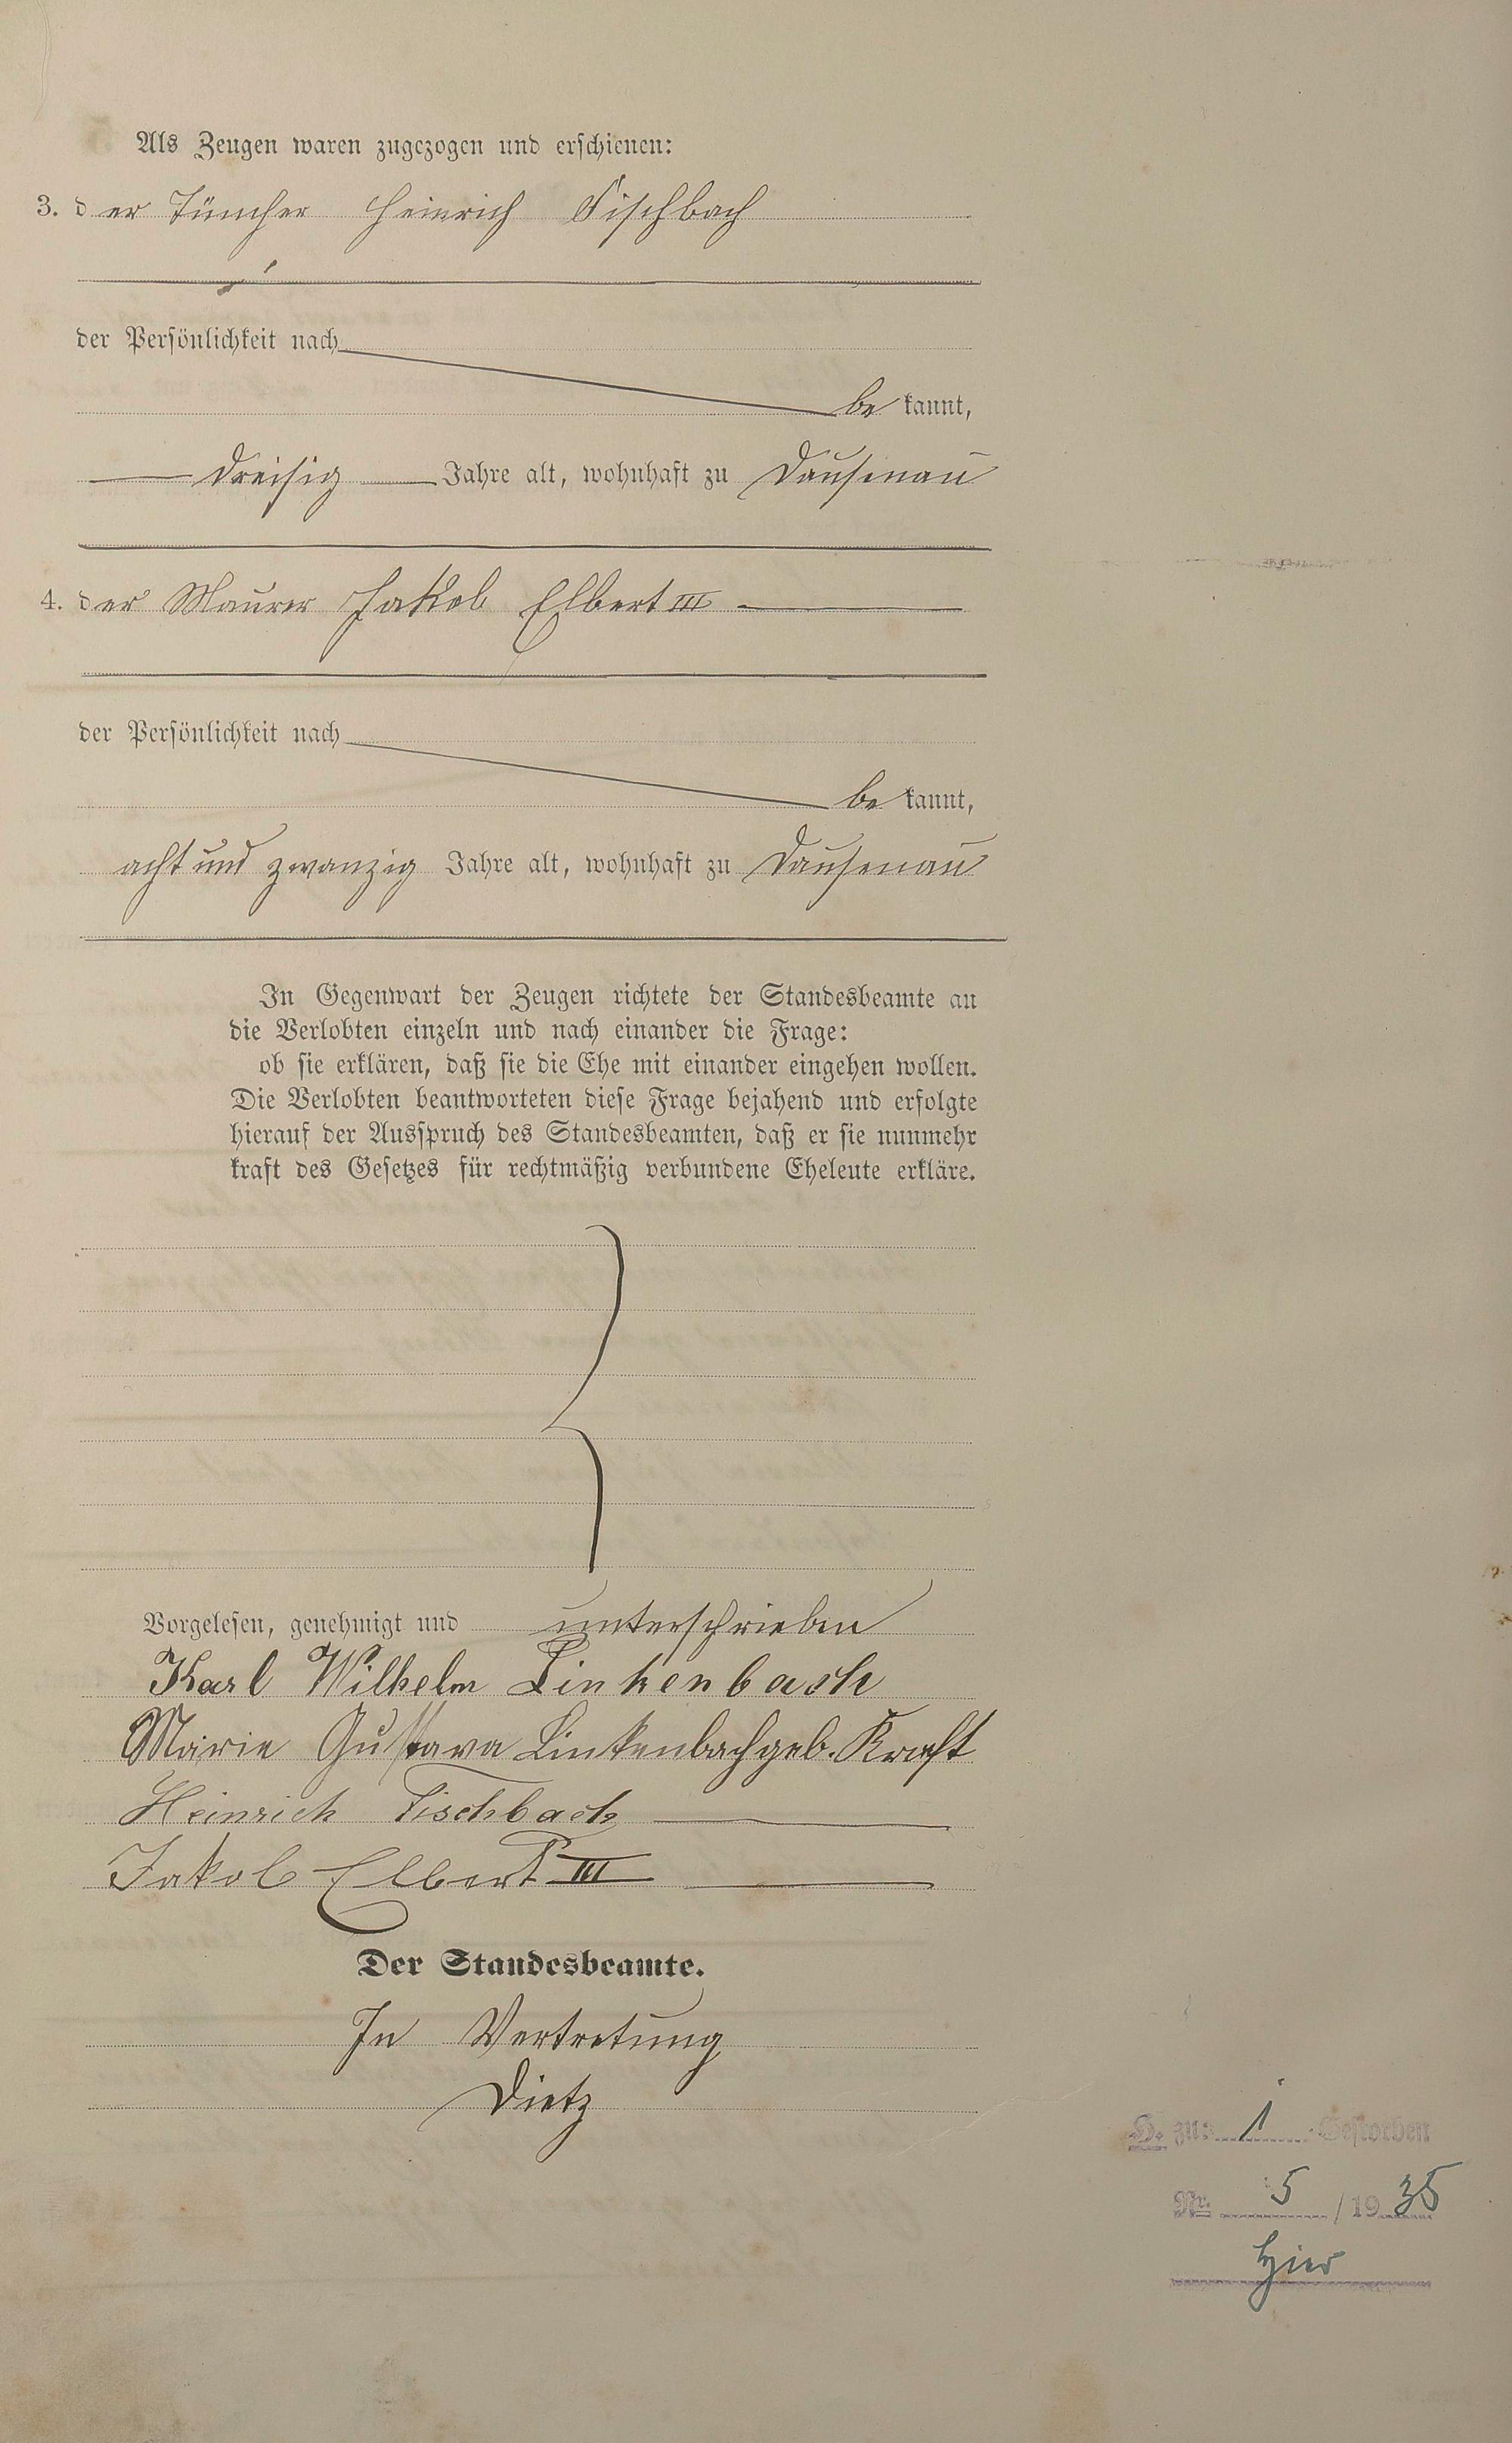 Als Zeugen waren zugezogen und erschienen:
3. der Tüncher Heinrich Fischbach
der Persönlichkeit nach
be kannt,
dreisig Jahre alt, wohnhaft zu Dausenau
4. der Maurer Jakob Elbert III
der Persönlichkeit nach
be kannt,
acht und zwanzig Jahre alt, wohnhaft zu Dausenau
In Gegenwart der Zeugen richtete der Standesbeamte an
die Verlobten einzeln und nach einander die Frage:
ob sie erklären, daß sie die Ehe mit einander eingehen wollen.
Die Verlobten beantworteten diese Frage bejahend und erfolgte
hierauf der Ausspruch des Standesbeamten, daß er sie nunmehr
kraft des Gesetzes für rechtmäßig verbundene Eheleute erkläre.
Vorgelesen, genehmigt und unterschrieben
Karl Wilhelm Linkenbach
Marie Gustava Linkenbach geb. Kraft
Heinrich Fischbach
Jakob Elbert III
Der Standesbeamte.
In Vertretung
Dietz
H. zu: 1 Gestorben
Nr. 5 / 19 35
hier